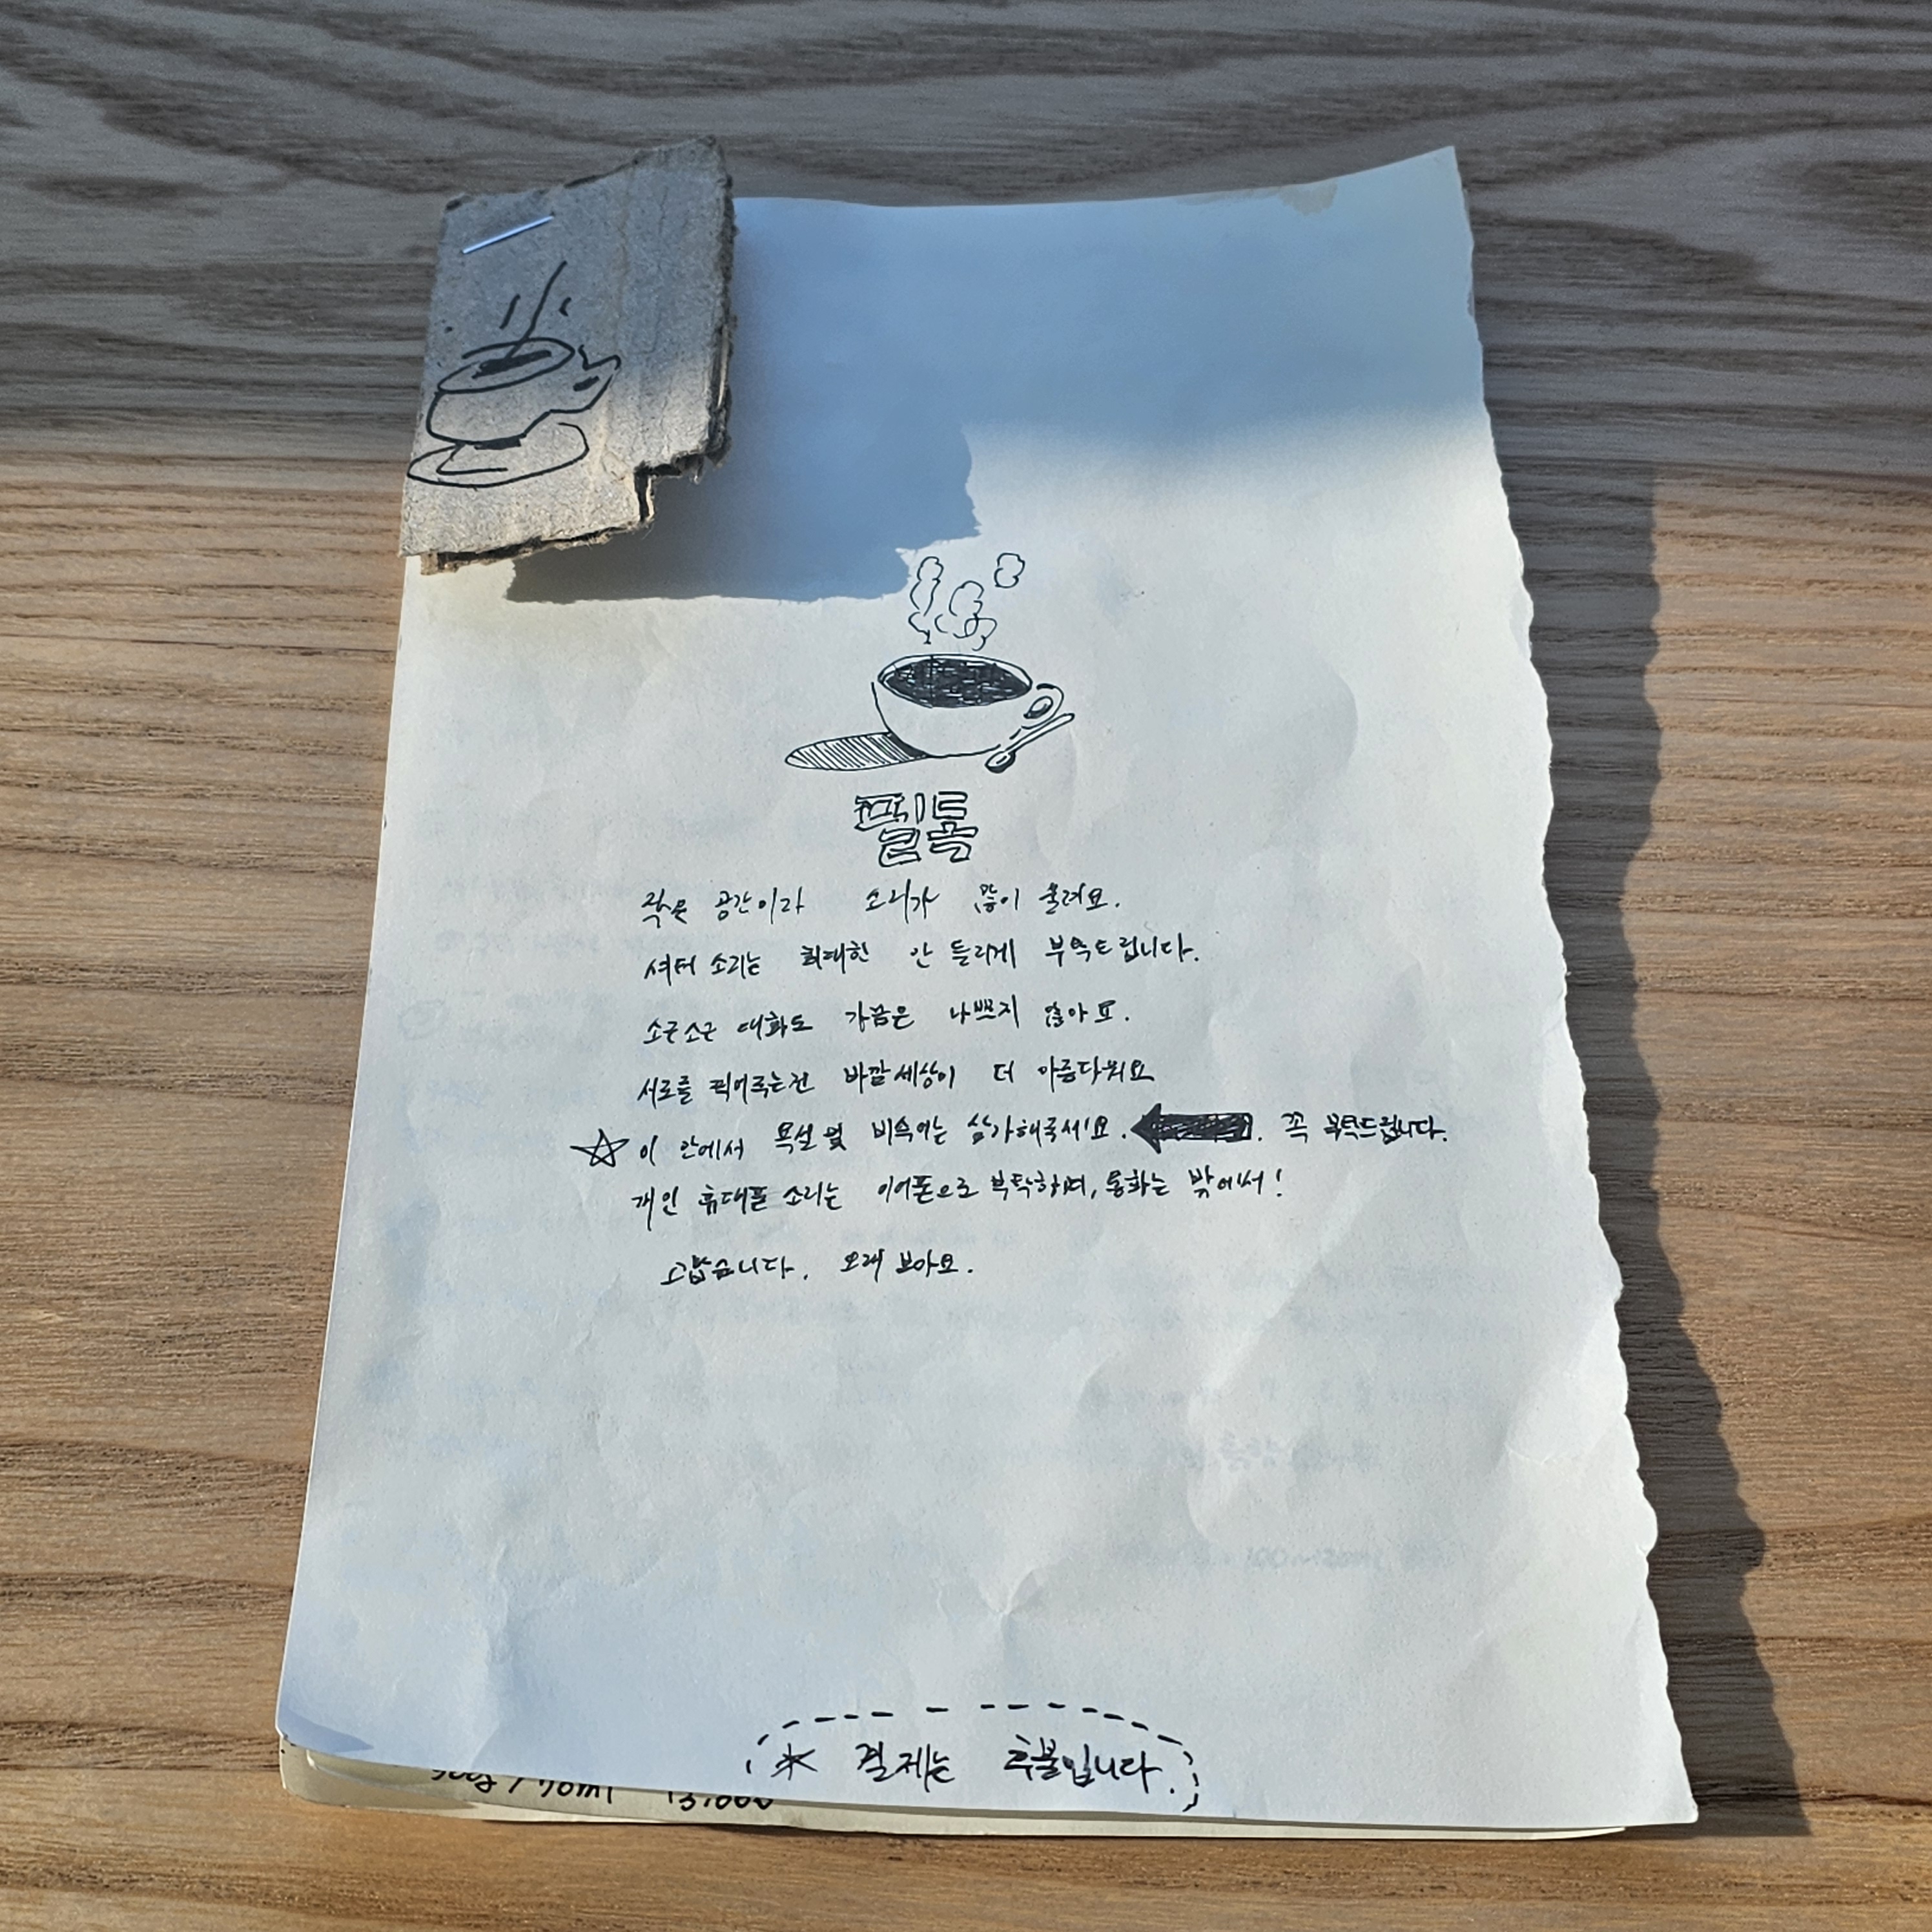 필톡
작은 공간이라 소리가 많이 울려요.
셔터 소리는 최대한 안 들리게 부탁드립니다.
소근소근 대화도 가끔은 나쁘지 않아요.
서로를 찍어주는건 바깥세상이 더 아름다워요
☆ 이 안에서 욕설 및 비속어는 삼가해주세요. ←. 꼭 부탁드립니다.
개인 휴대폰 소리는 이어폰으로 부탁하며, 통화는 밖에서!
고맙습니다. 오래 보아요.
※ 결제는 후불입니다.